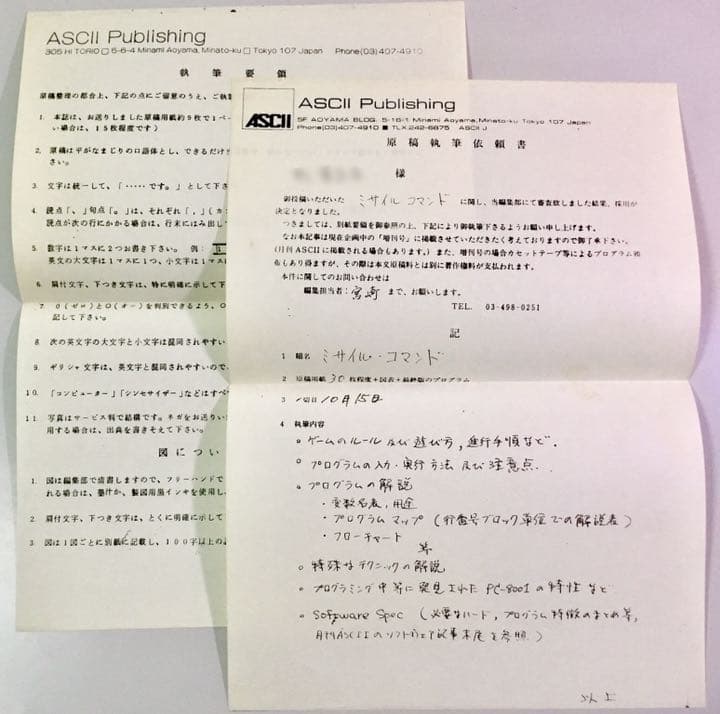 ASCII Publishing
305 HI TORIO□5-6-4 Minami Aoyama, Minato-ku□Tokyo 107 Japan Phone(03)407-4910
執筆要領
原稿整理の都合上、下記の点にご留意のうえ、ご執筆
1. 本誌は、お送りしました原稿用紙約9枚で1ペー
い場合は、15枚程度です)
2. 原稿は平がなまじりの口語体とし、できるだけ
さい。
3. 文字は統一して、「‥‥‥です。」として下さ
4. 読点「、」句点「。」は、それぞれ「,」(カン
読点が次の行にかかる場合は、行末にはみ出して
5. 数字は1マスに2つお書き下さい。 例:
英文の大文字は1マスに1つ、小文字は1マス
6. 肩付文字、下付き文字は、特に明確に示して下
7. 0(ゼロ)とO(オー)を判別できるよう、
記して下さい。
8. 次の英文字の大文字と小文字は混同されやすい
9. ギリシャ文字は、英文字と混同されやすいので、
10. 「コンピューター」「シンセサイザー」などはすべ
11. 写真はサービス判で結構です。ネガをお送りい
用する場合は、出典を書きそえて下さい。
図につい
1. 図は編集部で清書しますので、フリーハンドで
れる場合は、墨汁か、製図用黒インキを使用し、
2. 肩付文字、下つき文字は、とくに明確に示して
3. 図は1図ごとに別紙に記載し、100字以上の
ASCII
ASCII Publishing
5F AOYAMA BLDG. 5-16-1 Minami Aoyama, Minato-ku Tokyo 107 Japan
Phone(03)407-4910 ■ TLX.242-6875 ASCII J
原稿執筆依頼書
様
御投稿いただいた ミサイルコマンド に関し、当編集部にて審査致しました結果、採用が
決定となりました。
つきましては、別紙要領を御参照の上、下記により御執筆下さるようお願い申し上げます。
なお本記事は現在企画中の「増刊号」に掲載させていただきたく考えておりますので御了承下さい。
(月刊ASCIIに掲載される場合もあります)また、増刊号の場合カセットテープ等によるプログラム頒
布もあり得ますが、その際は本文原稿料とは別に著作権料が支払われます。
本件に関してのお問い合わせは
編集担当者: 宮崎 まで、お願いします。
TEL. 03-498-0251
記
1 題名 ミサイル・コマンド
2 原稿用紙 30 枚程度+図表+最終版のプログラム
3 〆切日 10月15日
4 執筆内容
○ ゲームのルール及び遊び方, 進行手順など.
○ プログラムの入力・実行方法及び注意点.
○ プログラムの解説
・変数名表, 用途
・プログラム マップ (行番号ブロック単位での解説表)
・フローチャート
等
○ 特殊なテクニックの解説
○ プログラミング中等に発見されたPC-8001の特性など
○ Software Spec (必要なハード, プログラム特徴のまとめ等,
月刊ASCIIのソフトウェア記事末尾を参照)
以上